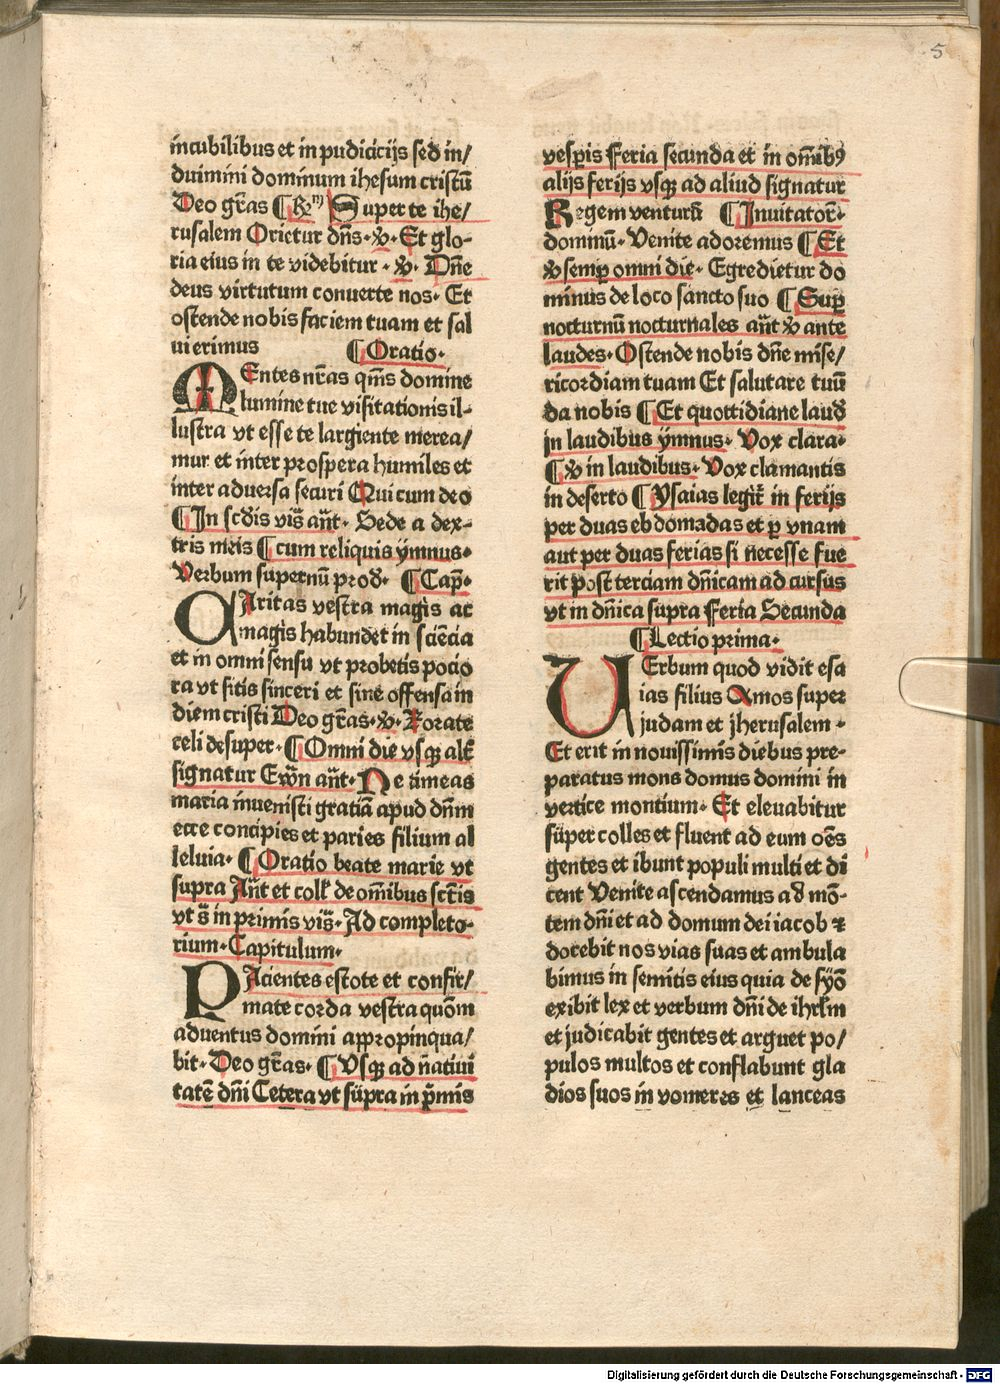 5
incubilibus et in pudicicijs sed in/
duimini dominum ihesum cristū
Deo gr̄as ¶ R Super te ihe/
rusalem Orietur dn̄s· ꝟ· Et glo-
ria eius in te videbitur · ꝟ· Dn̄e
deus virtutum conuerte nos· Et
ostende nobis faciem tuam et sal
ui erimus ¶ Oratio·
MEntes nr̄as qm̄s domine
lumine tue visitationis il-
lustra vt esse te largiente merea/
mur et inter prospera humiles et
inter aduersa securi Qui cum deo
¶ In scd̄is vis̄ an̄t· Sede a dex-
tris meis ¶ cum reliquis ymnus·
Verbum supernū prod̄· ¶ Cap̄·
CAritas vestra magis ac
magis habundet in sciēcia
et in omni sensu vt probetis pocio
ra vt sitis sinceri et sine offensa in
diem cristi Deo gr̄as· ꝟ· Rorate
celi desuper· ¶ Omni die vsq̄ alt̄
signatur Ewn̄ an̄t· Ne timeas
maria inuenisti gratiā apud dn̄m
ecce concipies et paries filium al
leluia· ¶ Oratio beate marie vt
supra An̄t et coll̄ de om̄ibus sct̄is
vt s̄ in primis vis̄· Ad completo-
rium· Capitulum·
PAcientes estote et confir/
mate corda vestra quōm
aduentus domini appropinqua/
bit· Deo gr̄as· ¶ Vsq̄ ad natiui
tatē dn̄i Cetera vt supra in p̄mis
vesp̄is Feria secunda et in om̄ibꝰ
alijs ferijs vsq̄ ad aliud signatur
Regem venturū ¶ Inuitator̄·
dominū· Venite adoremus ¶ Et
ꝟ semp̄ omni die· Egredietur do
minus de loco sancto suo ¶ Sup̄
nocturnū nocturnales an̄t ꝟ ante
laudes· Ostende nobis dn̄e mise/
ricordiam tuam Et salutare tuū
da nobis ¶ Et quottidiane laud̄
in laudibus ymnus· Vox clara·
¶ ꝟ in laudibus· Vox clamantis
in deserto ¶ Ysaias legit̄ in ferijs
per duas ebdomadas et p̄ vnam
aut per duas ferias si necesse fue
rit post terciam dn̄icam ad cursus
vt in dn̄ica supra Feria Secunda
¶ Lectio prima·
VErbum quod vidit esa
ias filius Amos super
judam et jherusalem ·
Et erit in nouissimis diebus pre-
paratus mons domus domini in
vertice montium· Et eleuabitur
super colles et fluent ad eum oēs
gentes et ibunt populi multi et di
cent Venite ascendamus ad mō-
tem dn̄i et ad domum dei iacob ⁊
docebit nos vias suas et ambula
bimus in semitis eius quia de syō
exibit lex et verbum dn̄i de ihrl̄m
et judicabit gentes et arguet po/
pulos multos et conflabunt gla
dios suos in vomeres et lanceas
Digitalisierung gefördert durch die Deutsche Forschungsgemeinschaft - DFG